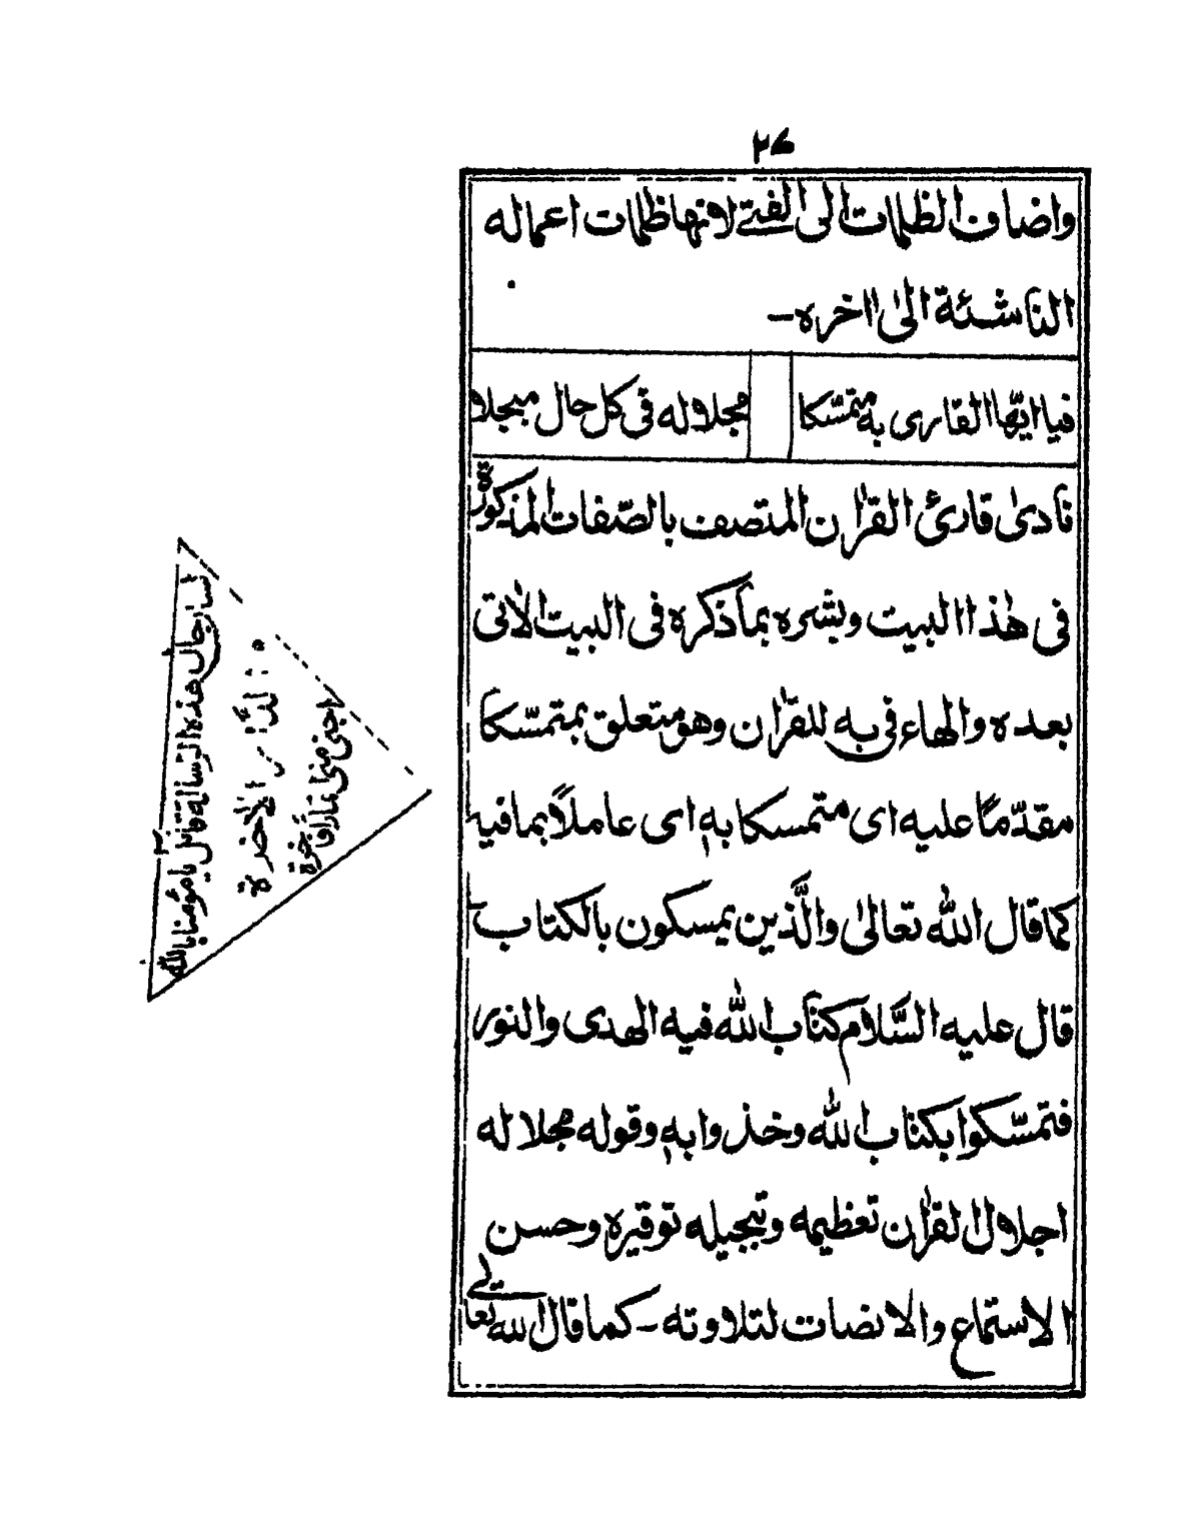 ٢٧
واضاف الظلمات الى الفتى لانها ظلمات اعماله
الناشئة الىٰ اخره۔
فيا ايّها القارى به متمسّكا مجلا له فى كل حال مبجلا
نادىٰ قارئ القراٰن المتصف بالصّفات المذكورة
فى هٰذا البيت وبشره بما ذكره فى البيت الاٰتى
بعده والهاء فى به للقراٰن وهو متعلق بمتمسّكا
مقدّمًا عليه اى متمسكا بهٖ اى عاملاً بما فيه
كما قال الله تعالىٰ والَّذين يمسكون بالكتاب
قال عليه السَّلام كتاب الله فيه الهدى والنور
فتمسّكوا بكتاب الله وخذوا بهٖ وقوله مجلا له
اجلال القراٰن تعظيمه وتبجيله توقيره وحسن
الاستماع والانصات لتلاوته۔ كما قال الله تعالى
هذه الرسالة قائل يا مؤمنا بالله
الاٰخرة
اجنى منها ثمارا فاخرة